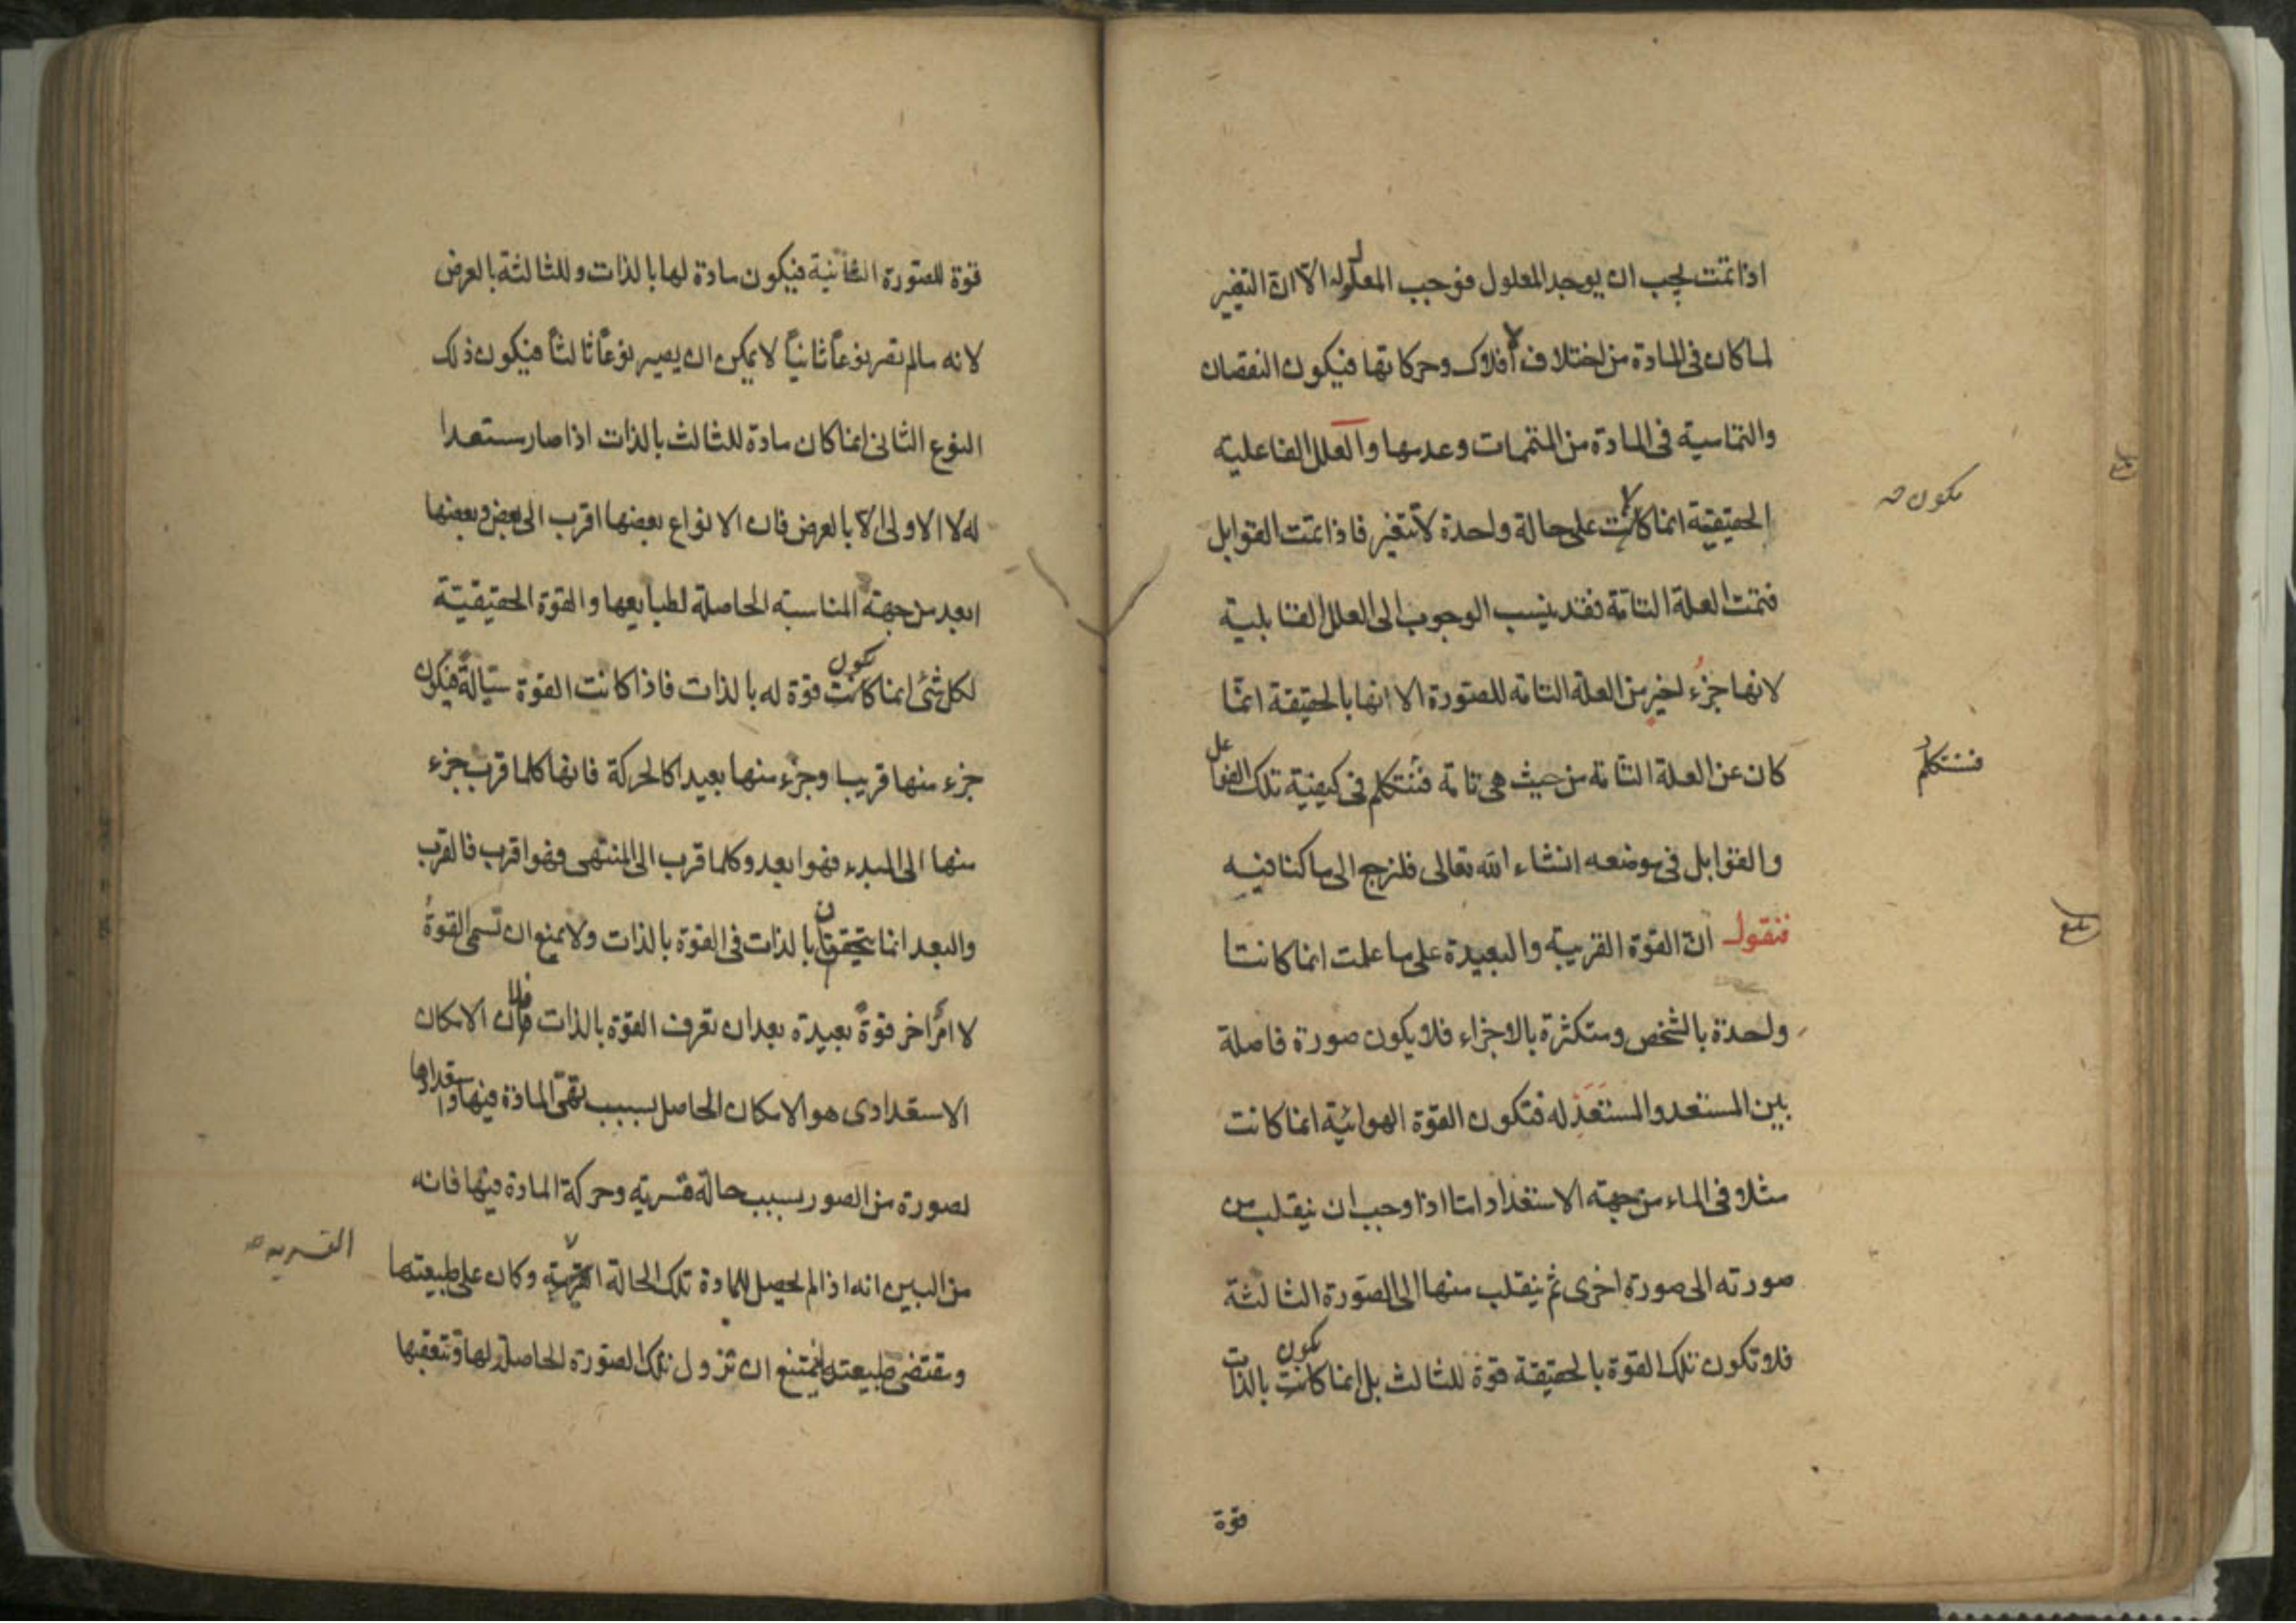 اذا تمت يجب ان يوجد المعلول فوجب المعلول الا ان التغير
لما كان فى المادة من اختلاف الافلاك وحركاتها فيكون النقصان
والتمامية فى المادة من المتممات وعدمها والعلل الفاعلية
الحقيقية انما كانت على حالة واحدة لا تتغير فاذا تمت القوابل
يكون صح
فتمت العلة التامة فقد ينسب الوجوب الى العلل القابلية
لانها جزء اخير من العلة التامة للصورة الا انها بالحقيقة انما
كان عن العلة التامة من حيث هى تامة فنتكلم فى كيفية تلك الفواعل
فسنتكلم
والقوابل فى موضعه انشاء الله تعالى فلنرجع الى ما كنا فيه
فنقول ان القوة القريبة والبعيدة على ما علمت انما كانتا
واحدة بالشخص ومتكثرة بالاجزاء فلا يكون صورة فاصلة
بين المستعد والمستعد له فتكون القوة الهوائية انما كانت
مثلا فى الماء من جهة الاستعداد اما اذا وجب ان ينقلب من
صورته الى صورة اخرى ثم ينقلب منها الى الصورة الثالثة
فلا تكون تلك القوة بالحقيقة قوة للثالث بل انما كانت يكون بالذات
قوة
قوة للصورة الثانية فيكون مادة لها بالذات وللثالثة بالعرض
لانه مالم تصر نوعاً ثانياً لا يمكن ان يصير نوعاً ثالثاً فيكون ذلك
النوع الثانى انما كان مادة للثالث بالذات اذا صار مستعدا
له لا الاولى الا بالعرض فان الانواع بعضها اقرب الى بعض وبعضها
ابعد من جهة المناسبة الحاصلة لطبايعها والقوة الحقيقية
لكل شئ انما كانت يكون قوة له بالذات فاذا كانت القوة سيالة فيكون
جزء منها قريبا وجزء منها بعيدا كالحركة فانها كلما قرب جزء
منها الى المبدء فهو ابعد وكلما قرب الى المنتهى فهو اقرب فالقرب
والبعد انما يتحققان بالذات فى القوة بالذات ولا يمنع ان تسمى القوة
لا امر اخر قوة بعيدة بعد ان تعرف القوة بالذات فلان الامكان
الاستعدادى هو الامكان الحاصل بسبب تهئ المادة فيها واستعدادها
لصورة من الصور بسبب حالة قسرية وحركة المادة فيها فانه
من البين انه اذا لم يحصل للمادة تلك الحالة القسرية وكان على طبيعتها
القسريه صح
ومقتضى طبيعته يمتنع ان تزول تلك الصورة الحاصلة لها وتتعقبها